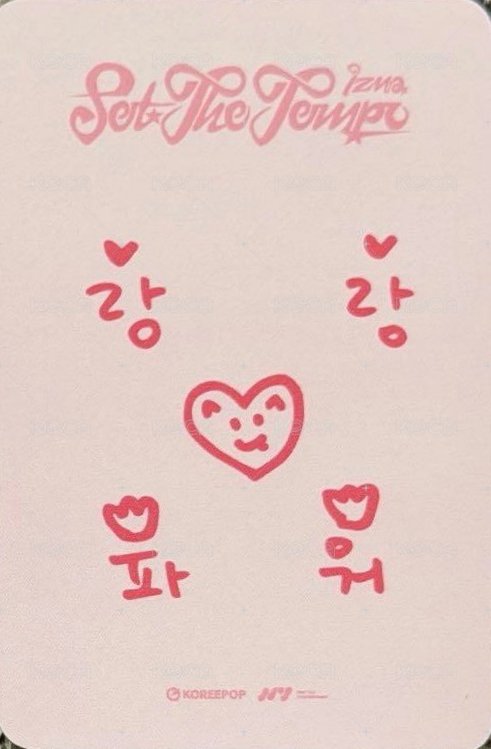 izna
Set The Tempo
랑 랑
파 워
KOREEPOP